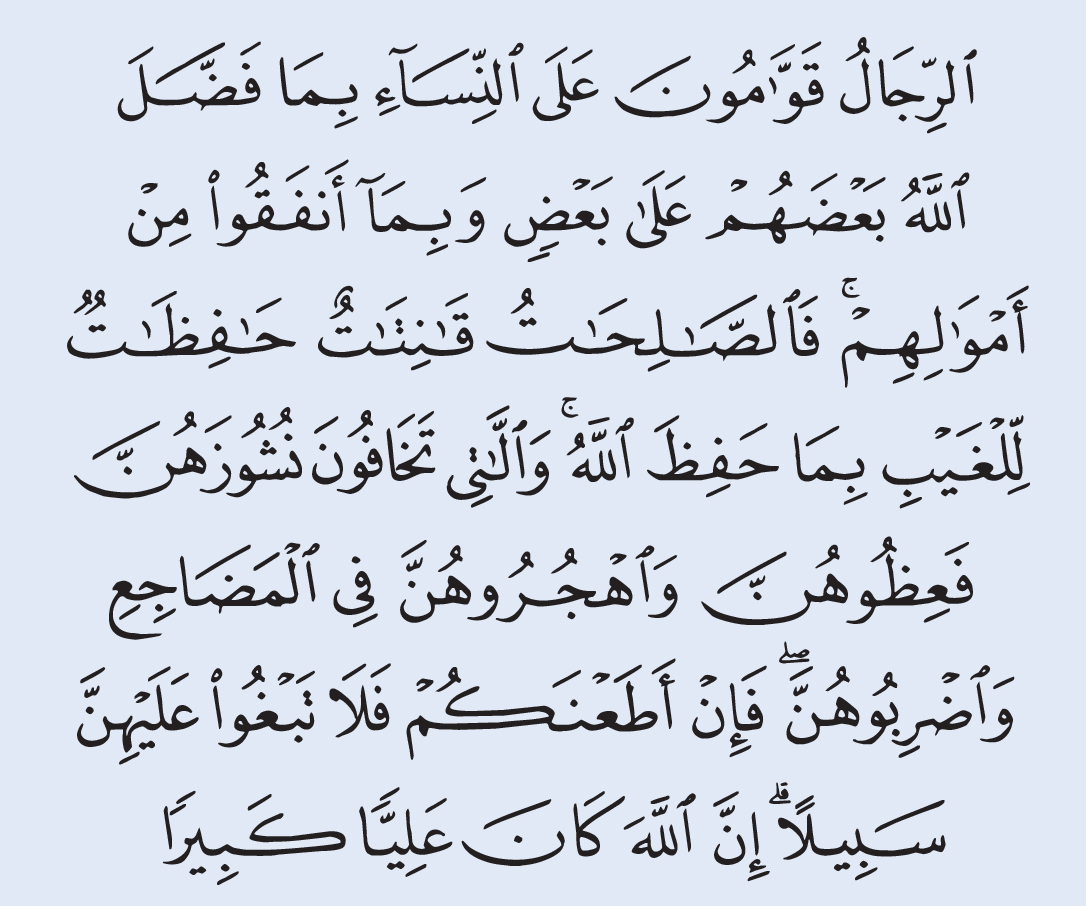 ٱلرِّجَالُ قَوَّٰمُونَ عَلَى ٱلنِّسَآءِ بِمَا فَضَّلَ
ٱللَّهُ بَعْضَهُمْ عَلَىٰ بَعْضٍ وَبِمَآ أَنفَقُوا۟ مِنْ
أَمْوَٰلِهِمْ ۚ فَٱلصَّـٰلِحَـٰتُ قَـٰنِتَـٰتٌ حَـٰفِظَـٰتٌ
لِّلْغَيْبِ بِمَا حَفِظَ ٱللَّهُ ۚ وَٱلَّـٰتِى تَخَافُونَ نُشُوزَهُنَّ
فَعِظُوهُنَّ وَٱهْجُرُوهُنَّ فِى ٱلْمَضَاجِعِ
وَٱضْرِبُوهُنَّ ۖ فَإِنْ أَطَعْنَكُمْ فَلَا تَبْغُوا۟ عَلَيْهِنَّ
سَبِيلًا ۗ إِنَّ ٱللَّهَ كَانَ عَلِيًّا كَبِيرًا